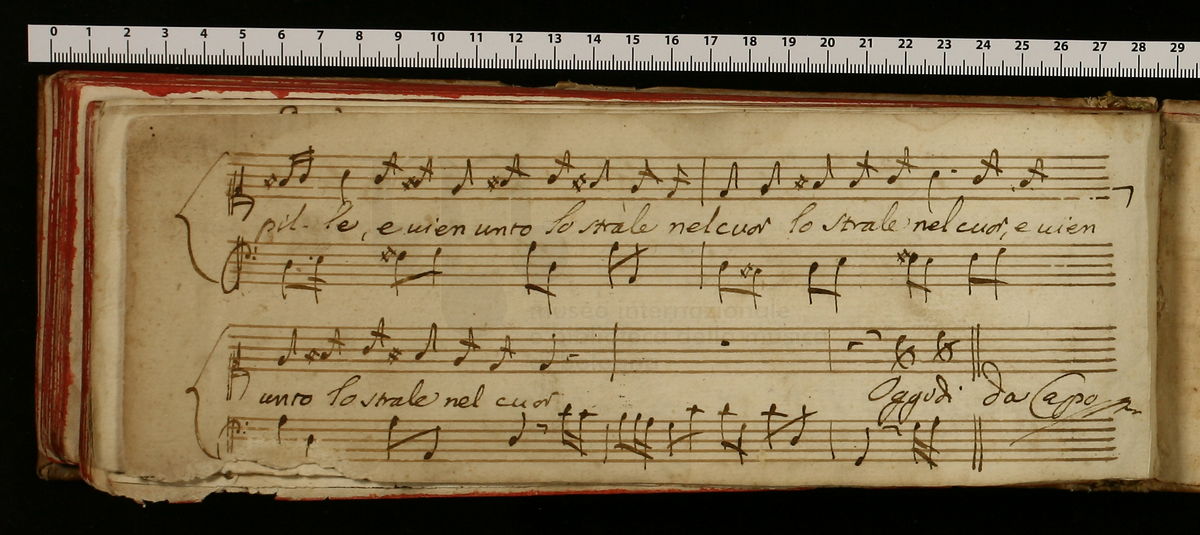 0 1 2 3 4 5 6 7 8 9 10 11 12 13 14 15 16 17 18 19 20 21 22 23 24 25 26 27 28 29
pil- le, e uien unto lo strale nel cuor lo strale nel cuor, e uien
museo internazionale
unto lo strale nel cuor Oggidi da Capo